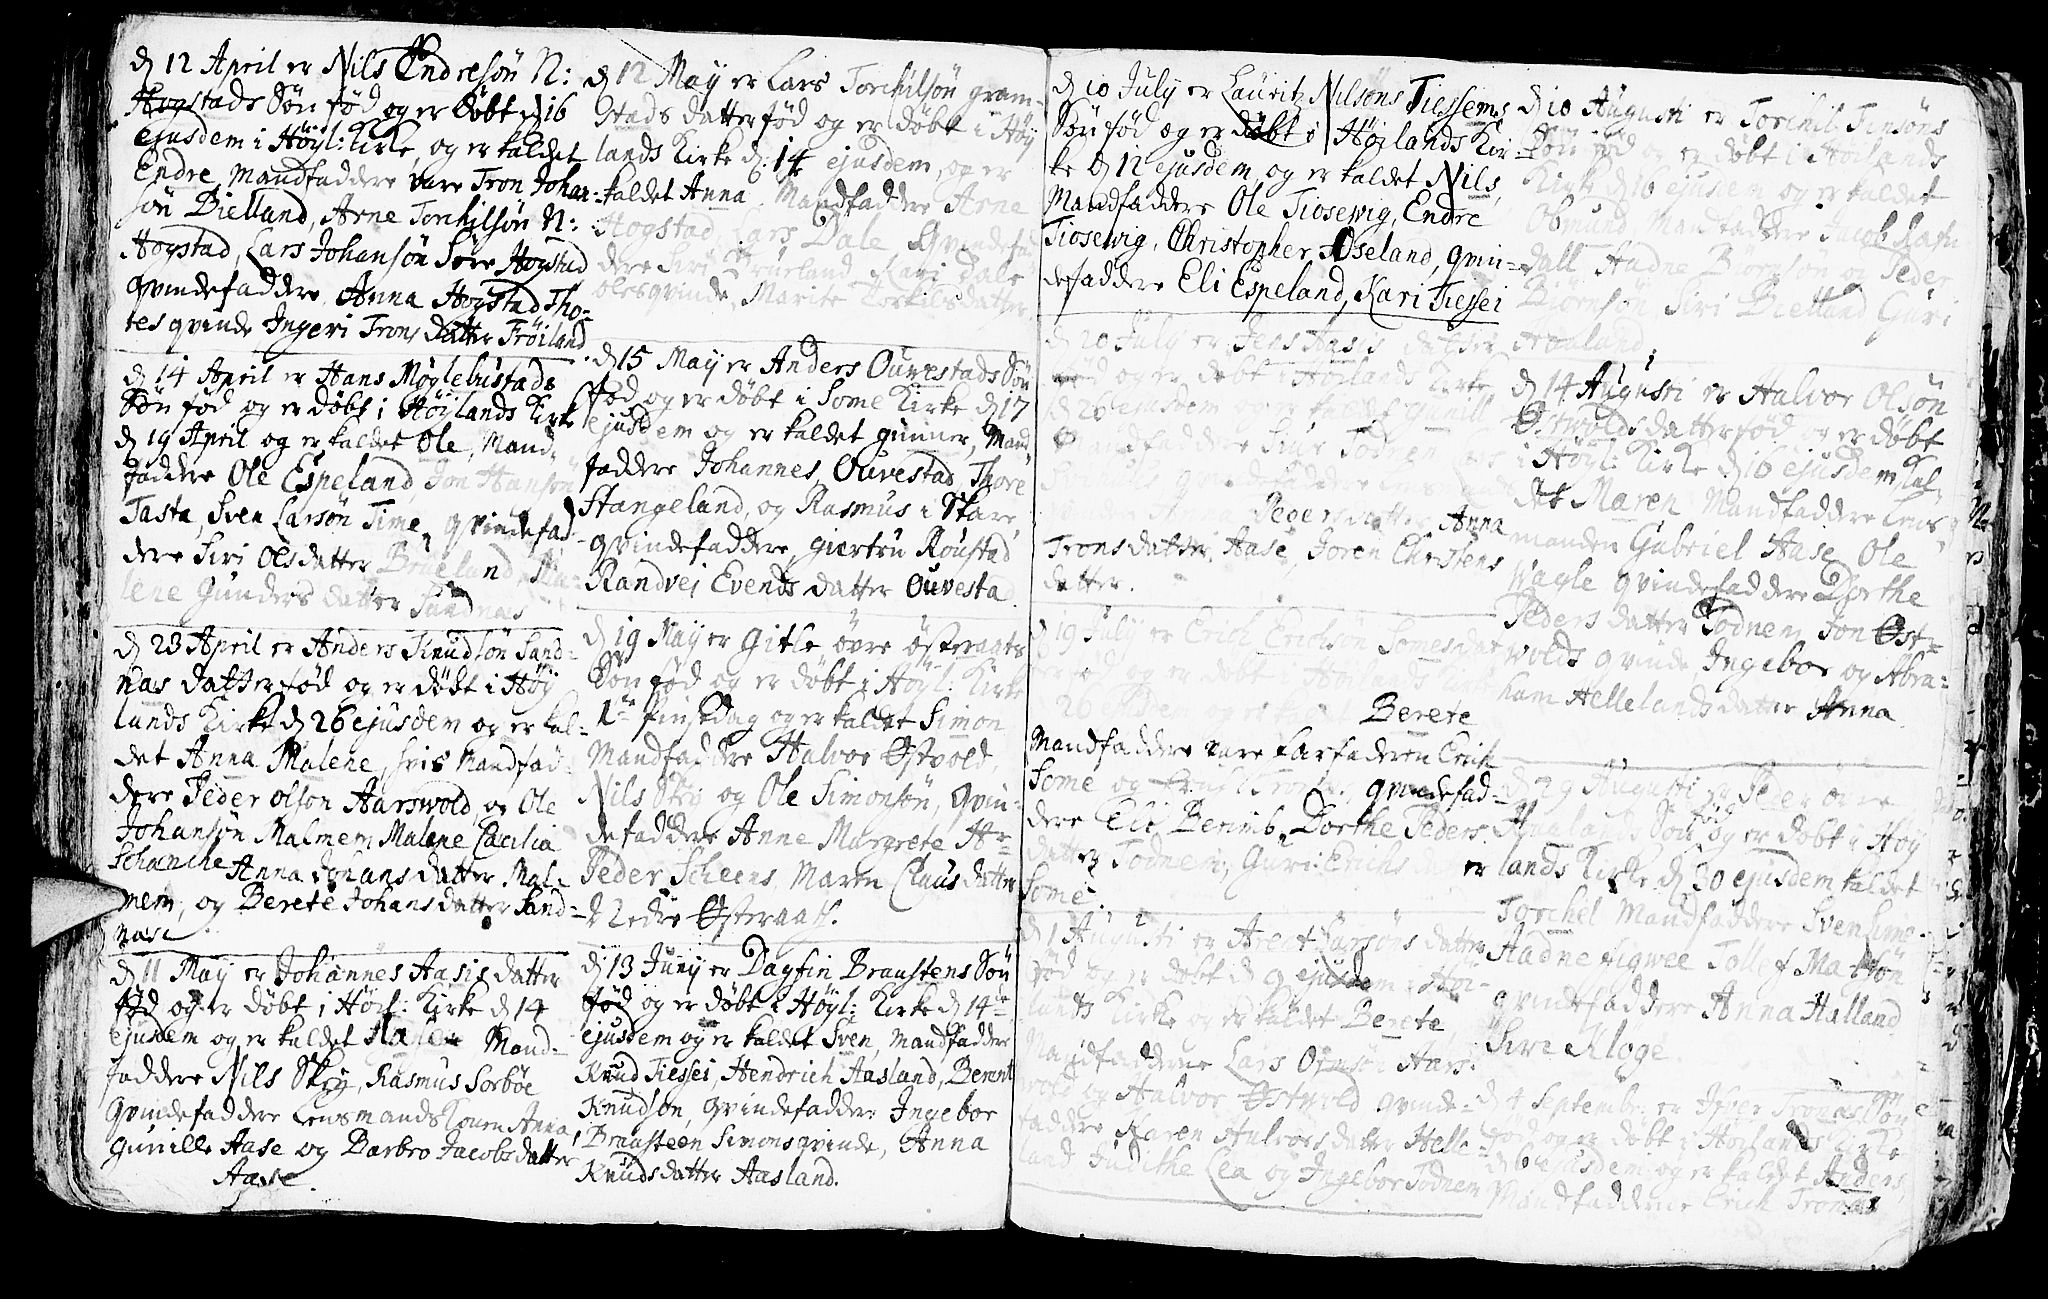 d 12 April er Nils Endresön N:
Hogstads Sön föd og er döbt d 16
ejusdem i Höyl: Kirke, og er kaldet
Endre, Mandfaddere vare Tron Johan-
sön Bielland, Arne Torchilsön N:
Hogstad, Lars Johansön Söre Hogstad
qvindefaddere Anna Hogstad Tho-
res qvinde Ingeri Trons datter Fröiland
d 14 April er Hans Möglebustads
Sön föd og er döbt i Höylands Kirke
d 19 April og er kaldet Ole, Mand-
faddere Ole Espeland Jon Hansön
Tasta, Sven Larsön Time, qvindefad-
dere Siri Olsdatter Brueland, Ma-
lene Gunders datter Sandnæs
d 23 April er Anders Knudsön Sand-
næs datter föd og er döbt i Höy
lands Kirke d 26 ejusdem og er kal-
det Anna Malene, hvis Mandfad-
dere Peder Olson Aarswold, og Ole
Johansön Malmem Malene Cæcilia
Schanche Anna Johans datter Mal-
mem, og Berete Johansdatter Sand-
næs
d 11 May er Johannes Aasis datter
föd og er döbt i Höyl: Kirke d 14
ejusdem og er kaldet Mand-
faddere Nils Skey, Rasmus Sorböe
Qvindefaddere Lensmands Konen Anna,
Gunille Aase og Barbro Jacobsdatter
Aase.
d 12 May er Lars Torchilsön gram-
stads datter föd og er döbt i Höy
lands Kirke d: 14 ejusdem, og er
kaldet Anna. Mandfaddere Arne
Hogstad, Lars Dale Qvindefad
dere Siri Brueland, Kari Dale
Oles qvinde, Marite
d 15 May er Anders Ouvestads Sön
föd og er döbt i Some Kirke d 17
ejusdem og er kaldet gunner, Mand
faddere Johannes Ouvestad, Thore
Stangeland, og Rasmus i Skare,
qvindefaddere, giertru Roustad
Randvei Evends datter Ouvesta
d 19 May er Gitle övre österaats
Sön föd og er döbt i Höyl: Kirke
1te pinsedag og er kaldet Simon
Mandfaddere Halvor Østvold,
Nils Skey og Ole Simonsön, qvin-
defaddere Anne Margrete Hr
Peder Scheens, Maren Claus datter
Nedre Østeraatt.
d 13 Juny er Dagfin Braustens Sön
föd og er döbt i Höyl: Kirke d 14de
ejusdem og er kaldet Sven, Mandfaddere
Knud Tiessei, Hendrich Aasland, Berent
Knudsön, qvindefadder Ingebor
Brausteen Simons qvinde, Anna
Knudsdatter Aasland.
d 10 July er Lauritz Nilsöns Tiessems
Sön föd og er döbt i Höilands Kir-
ke d 12 ejusdem, og er kaldet Nils,
Mandfaddere Ole Tiosevig, Endre
Tiosewig, Christopher Øseland, qvin-
defaddere Eli Espeland, Kari Tiessei
d 20 July er Jens Aasis datter
föd og er döbt i Höilands Kirke
d 26 ejusdem og er kaldet Gunill
Mandfaddere Todnem
Peders datter, Anna
Tronsdatter, Aase, Joren Christens
datter.
d 19 July er Erich Erichsön Somes datter
föd og er döbt i Höilands Kirke
26 ejusdem Berete
Mandfaddere vare Farfaderen Erich
Some og qvindefad-
dere Eli Dorthe Peders
datter Todnem, Guri Erichs
Some.
d 1 Augusti er Arent Larsöns datter
föd og er döbt d 9 ejusdem i Höi-
lands Kirke og er kaldet Berete
Mandfaddere Lars Olsson Aars-
vold og Halvor Østvold qvinde-
faddere Karen Halvors datter Helle-
land Judithe Lea og Ingebor Todnem
d 10 Augusti er Torchil Tinsöns
Sön föd og er döbt i Höilands
Kirke d 16 ejusdem og er kaldet
Osmund, Mandfaddere Jacob
dall Aadne Biörnsön og Peder
Biörnsön, Siri Bielland, Guri
d 14 Augusti er Halvor Olsön
Östwolds datter föd og er döbt
i Höyl: Kirke d 16 ejusdem, Kal-
det Maren Mandfaddere Lens-
manden Gabriel Aase, Ole
Wagle qvindefaddere Dorthe
Peders datter Todnem, Jon Øst-
wolds qvinde, Ingebor og Abra-
ham Hellelands datter Anna
d 29 Augusti er Peder övre
Sön föd og er döbt i Höy
lands Kirke d 30 ejusdem kaldet
Torchel Mandfaddere Sven
Aadne Tollef Matsön
qvindefaddere Anna Halland
Siri Kloge.
d 4 Septembr: er Iver Tronæs Sön
föd og er döbt i Höilands Kirke
d 6 ejusdem og er kaldet Anders,
Mandfaddere Erich Tronæs